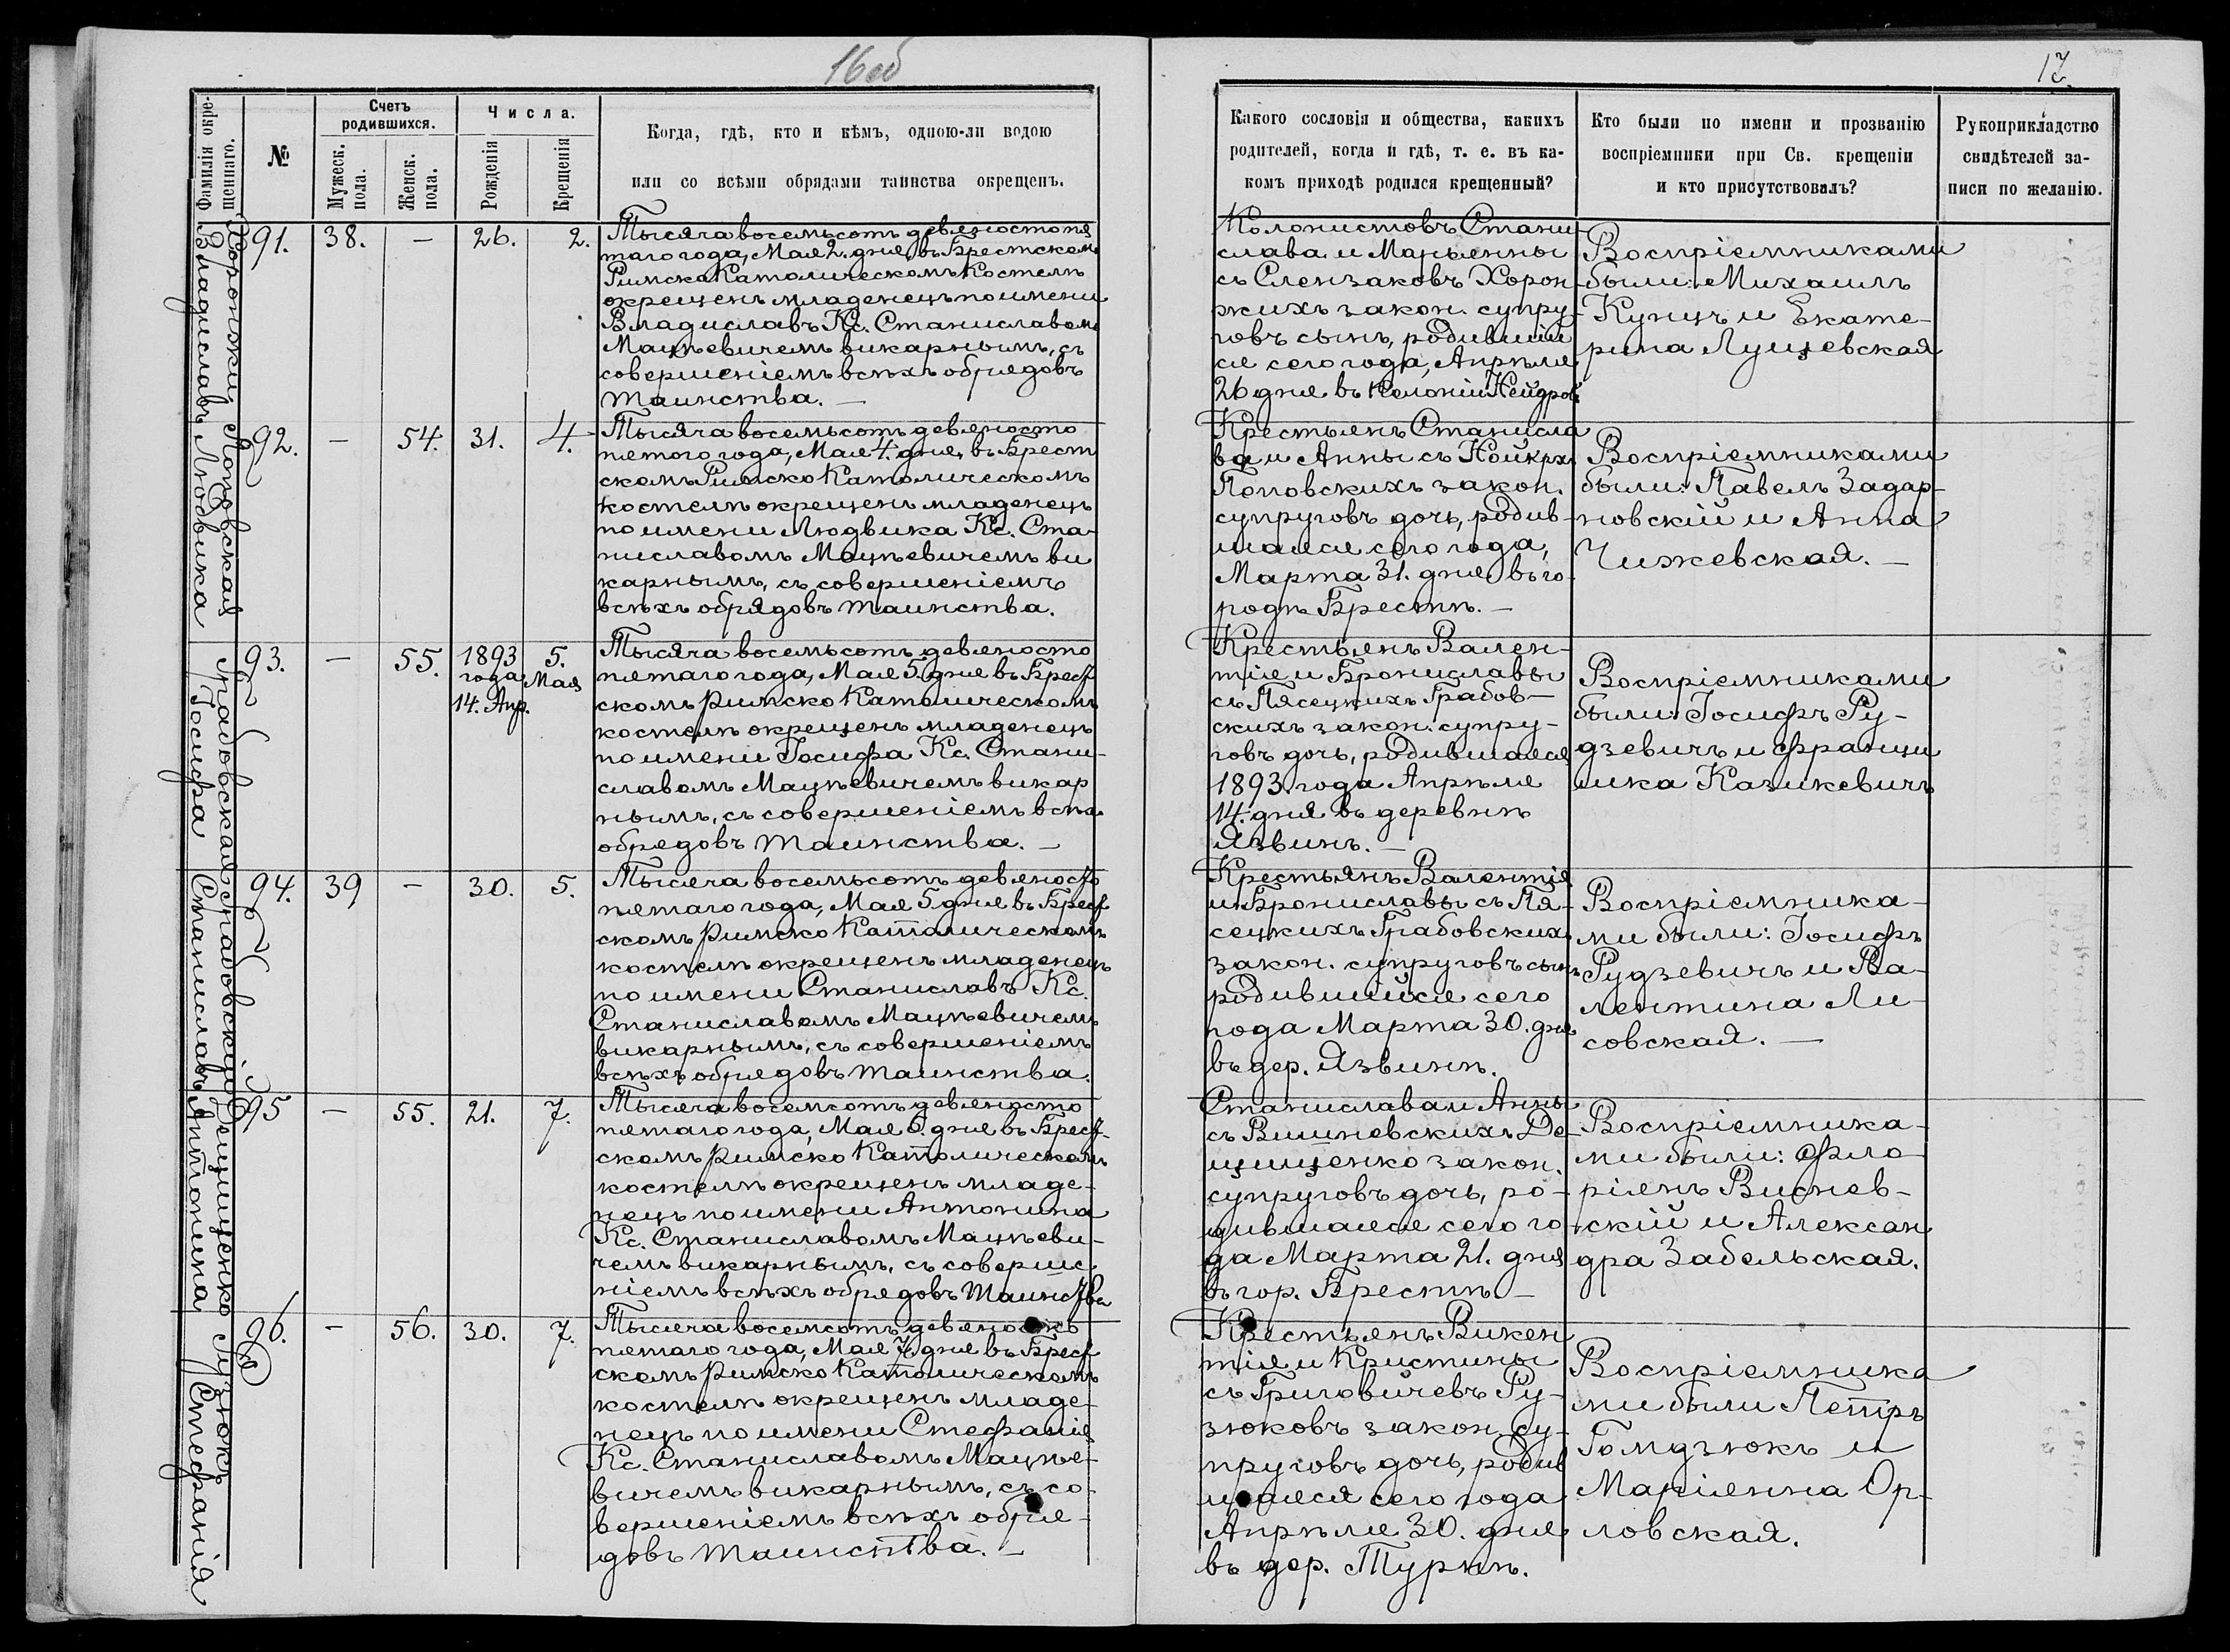 16 об
17
Фамилія окре-
щеннаго.
№
Счетъ
родившихся.
Мужеск.
пола.
Женск.
пола.
Числа.
Рожденія
Крещенія
Когда, гдѣ, кто и кѣмъ, одною-ли водою
или со всѣми обрядами таинства окрещенъ.
Какого сословія и общества, какихъ
родителей, когда и гдѣ, т. е. въ ка-
комъ приходѣ родился крещенный?
Кто были по имени и прозванію
воспріемники при Св. крещеніи
и кто присутствовалъ?
Рукоприкладство
свидѣтелей за-
писи по желанію.
Хоронжій
Владиславъ
91. 38. — 26. 2.
Тысяча восемьсотъ девяносто пя
таго года, Мая 2. дня, въ Брестскомъ
Римско Католическомъ Костелѣ
окрещенъ младенецъ по имени
Владиславъ Кс. Станиславомъ
Мацѣевичемъ викарнымъ, съ
совершеніемъ всѣхъ обрядовъ
таинства. —
Колонистовъ Стани
слава и Марьянны
съ Слензаковъ Хорон
жихъ закон. супру-
говъ сынъ, родившій
ся сего года, Апрѣля
26 дня въ Колоніи Нейдровъ
Воспріемниками
были: Михаилъ
Кунцъ и Екате-
рина Лущевская
Поповская
Людвика
92. — 54. 31. 4.
Тысяча восемьсотъ девяносто
пятого года, Мая 4. дня, въ Брест
скомъ Римско Католическомъ
костелѣ окрещенъ младенецъ
по имени Людвика Кс. Ста-
ниславомъ Мацѣевичемъ ви
карнымъ, съ совершеніемъ
всѣхъ обрядовъ таинства.
Крестьянъ Станисла
ва и Анны съ
Поповскихъ закон.
супруговъ дочь, родив-
шаяся сего года,
Марта 31. дня, въ го-
родѣ Брестѣ. —
Воспріемниками
были: Павелъ Задар-
новскій и Анна
Чижевская. —
Грабовская
Іосифа
93. — 55. 1893 года 14. Апр. 5. Мая
Тысяча восемьсотъ девяносто
пятаго года, Мая 5. дня въ Брест
скомъ римско Католическомъ
костелѣ окрещенъ младенецъ
по имени Іосифа Кс. Стани-
славомъ Мацѣевичемъ викар
нымъ, съ совершеніемъ всѣхъ
обрядовъ таинства. —
Крестьянъ Вален-
тія и Брониславы
съ Пясецкихъ Грабов-
скихъ закон. супру-
говъ дочь, родившаяся
1893. года Апрѣля
14. дня въ деревнѣ
Язвинъ. —
Воспріемниками
были: Іосифъ Ру-
дзевичъ и Франци
шка Казикевичъ
Грабовскій
Станиславъ
94. 39 — 30. 5.
Тысяча восемьсотъ девяносто
пятаго года, Мая 5 дня въ Брест
скомъ римско Католическомъ
костелѣ окрещенъ младенецъ
по имени Станиславъ Кс.
Станиславомъ Мацѣевичемъ
викарнымъ, съ совершеніемъ
всѣхъ обрядовъ таинства.
Крестьянъ Валентія
и Брониславы съ Пя-
сецкихъ Грабовскихъ
закон. супруговъ сынъ
родившійся сего
года Марта 30. дня
въ дер. Язвинѣ.
Воспріемника-
ми были: Іосифъ
Рудзевичъ и Ва-
лентина Ли-
совская. —
Децищенко
Антонина
95 — 55. 21. 7.
Тысяча восемсотъ девяносто
пятаго года, Мая 6. дня въ Брест-
скомъ римско Католическомъ
костелѣ окрещенъ младе-
нецъ по имени Антонина
Кс. Станиславомъ Мацѣеви-
чемъ викарнымъ, съ соверше
ніемъ всѣхъ обрядовъ таинства
Станислава и Анны
съ Вишневскихъ Де-
цищенко закон.
супруговъ дочь, ро-
дившаяся сего го-
да Марта 21. дня
въ гор. Брестѣ —
Воспріемника-
ми были: Фло-
ріянъ Виснев-
скій и Алексан
дра Забельская.
Рузюкъ
Стефанія
96. — 56. 30. 7.
Тысяча восемсотъ девяносто
пятаго года, Мая 7. дня въ Брест
скомъ римско Католическомъ
костелѣ окрещенъ младе-
нецъ по имени Стефанія
Кс. Станиславомъ Мацѣе-
вичемъ викарнымъ, съ со-
вершеніемъ всѣхъ обря-
довъ таинства. —
Крестьянъ Викен
тія и Кристины
съ Григовичевъ Ру-
зюковъ закон. су-
пруговъ дочь, родив
шаяся сего года
Апрѣля 30. дня
въ дер. Турнѣ.
Воспріемника
ми были Петръ
Гомдзюкъ и
Маріянна Ор-
ловская.